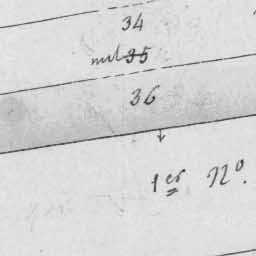 34
nul 35
36
1er 22°.